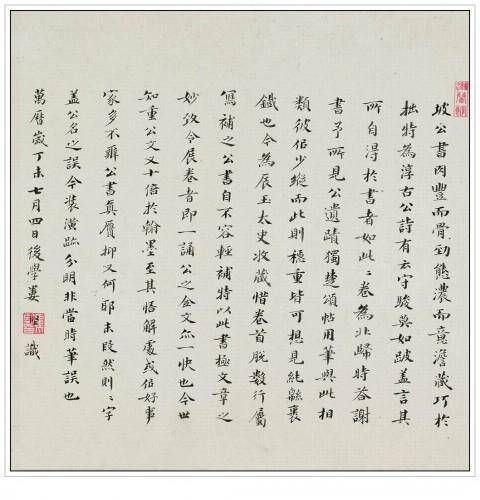 坡公書肉豐而骨勁態濃而意澹藏巧於
拙特為淳古公詩有云守駿莫如跛蓋言其
所自得於書者如此〻卷為北歸時答謝
書予所見公遺蹟獨楚頌帖用筆與此相
類彼佀少縱而此則穩重皆可想見純緜裹
鐵也今為辰玉太史收藏惜卷首脫數行屬
寫補之公書自不容輕補特以此書極文章之
妙故令展卷者即一誦公之全文亦一快也今世
知重公文又十倍於翰墨至其悟解處或佀好事
家多不辨公書真贗抑又何耶末段然則〻字
盖公名之誤今裝潢跡分明非當時筆誤也
萬曆歲丁未七月四日後學婁堅識